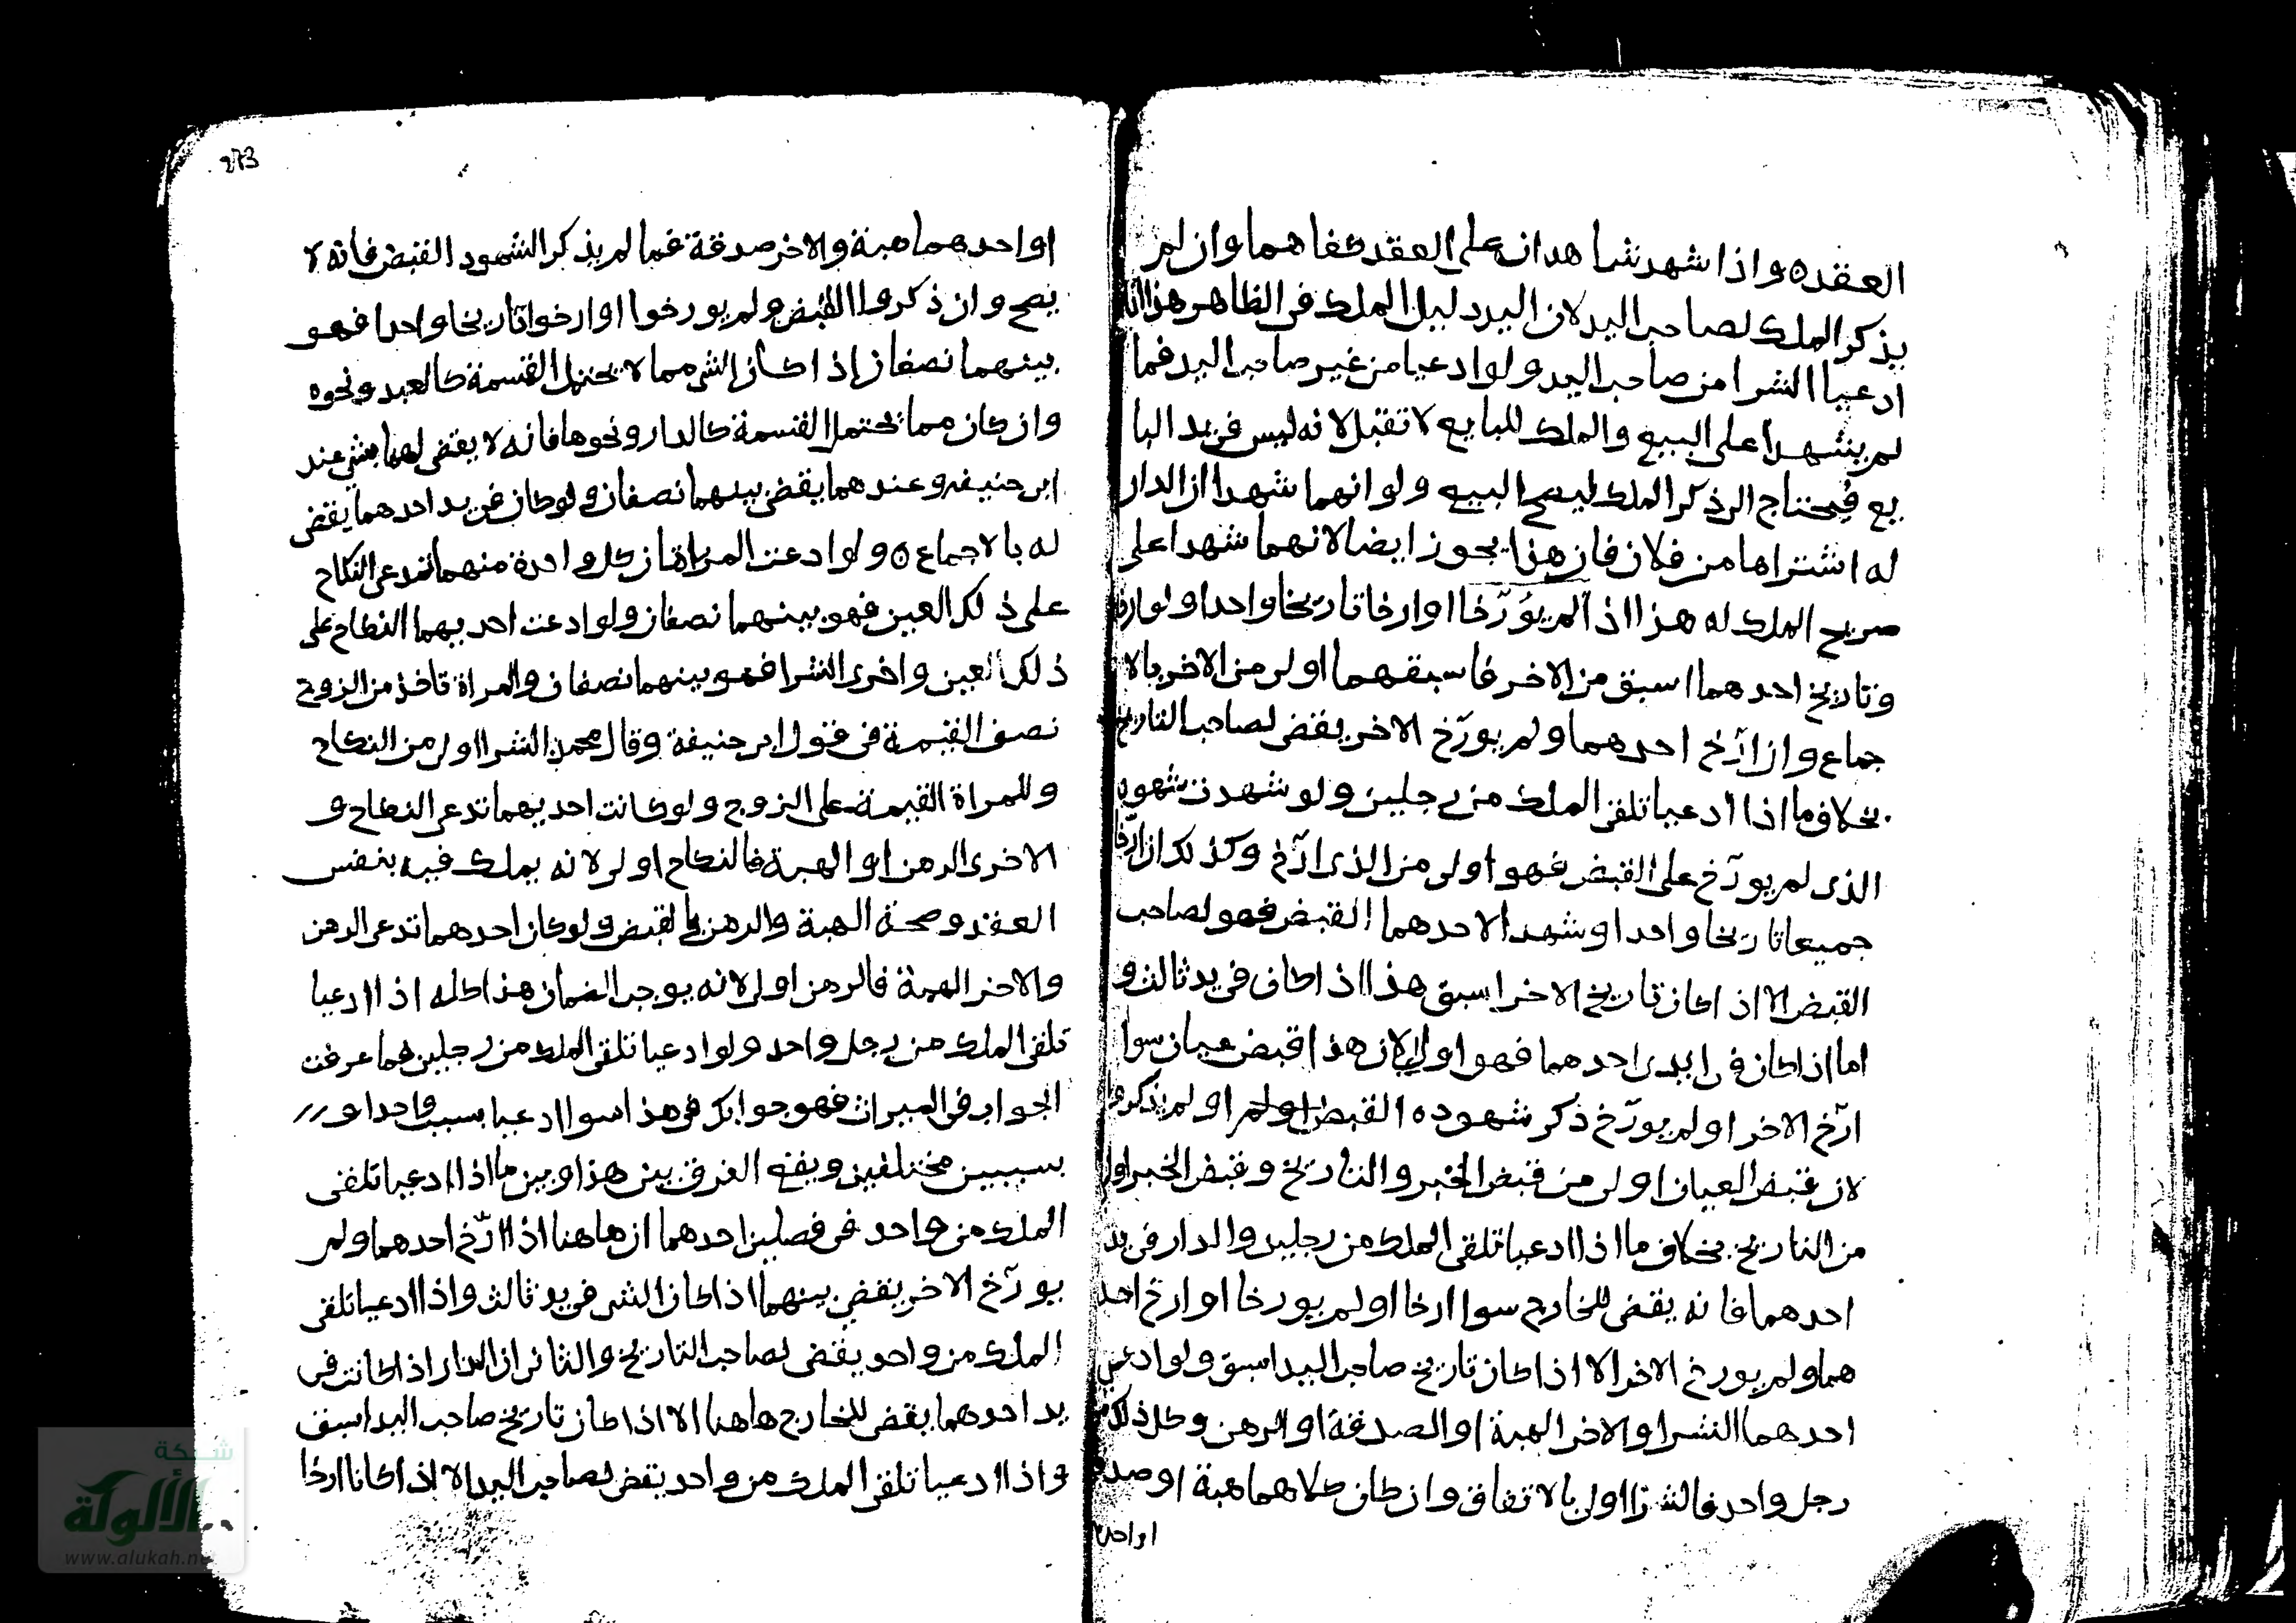 العقده واذا شهد شاهدان على العقد كفاهما وان لم
يذكر الملك لصاحب اليد لان اليد دليل الملك في الظاهر هذا اذا
ادعيا الشرا من صاحب اليد ولو ادعيا من غير صاحب اليد فما
لم يشهدا على البيع والملك للبايع لا تقبل لانه ليس في يد البا
يع فيحتاج الى ذكر الملك ليصح البيع ولو انهما شهدا ان الدار
له اشتراها من فلان فان هذا يجوز ايضا لانهما شهدا على
صريح الملك له هذا اذا لم يؤرّخا او ارخا تاريخا واحدا ولو ارخا
وتاريخ احدهما اسبق من الاخر فاسبقهما اولى من الاخر بالا
جماع وان ارّخ احدهما ولم يورّخ الاخر يقضى لصاحب التاريخ
بخلاف ما اذا ادعيا تلقى الملك من رجلين ولو شهدت شهود
الذى لم يورّخ على القبض فهو اولى من الذى ارّخ وكذلك ان ارّخا
جميعا تاريخا واحدا وشهدا لاحدهما القبض فهو لصاحب
القبض الا اذا كان تاريخ الاخر اسبق هذا اذا كان في يد ثالث و
اما اذا كان فى ايدى احدهما فهو اولى لان هذا قبض عيان سوا
ارّخ الاخر او لم يورّخ ذكر شهوده القبض او لم يذكروا
لان قبض العيان اولى من قبض الخبر والتاريخ وقبض الخبر اولى
من التاريخ بخلاف ما اذا ادعيا تلقى الملك من رجلين والدار في يد
احدهما فانه يقضى للخارج سوا ارخا او لم يورخا او ارخ احد
هما ولم يورخ الاخر الا اذا كان تاريخ صاحب اليد اسبق ولو ادعى
احدهما الشرا والاخر الهبة او الصدقة او الرهن وكل ذلك من
رجل واحد فالشرا اولى بالاتفاق وان كان كلاهما هبة او صدقة
او احد
273
او احدهما هبة والاخر صدقة فما لم يذكر الشهود القبض فانه لا
يصح وان ذكروا القبض ولم يورخوا او ارخوا تاريخا واحدا فهو
بينهما نصفان اذا كان الشى مما لا يحتمل القسمة كالعبد ونحوه
وان كان مما يحتمل القسمة كالدار ونحوها فانه لا يقضى لهما بشي عند
ابى حنيفه وعندهما يقضى بينهما نصفان ولو كان في يد احدهما يقضى
له بالاجماع ه ولو ادعت المراتان كل واحدة منهما تدعى النكاح
على ذلك العين فهو بينهما نصفان ولو ادعت احديهما النكاح على
ذلك العين واخرى الشرا فهو بينهما نصفان والمراة تاخذ من الزوج
نصف القيمة فى قول ابى حنيفة وقال محمد الشرا اولى من النكاح
وللمراة القيمة على الزوج ولو كانت احديهما تدعى النكاح و
الاخرى الرهن او الهبة فالنكاح اولى لانه يملك فيه بنفس
العقد وصحة الهبة والرهن بالقبض ولو كان احدهما تدعى الرهن
والاخر الهبة فالرهن اولى لانه يوجب الضمان هذا كله اذا ادعيا
تلقى الملك من رجل واحد ولو ادعيا تلقى الملك من رجلين فما عرفت
الجواب فى الميراث فهو جوابك فى هذا سوا ادعيا بسبب واحد او
بسببين مختلفين ويقع الفرق بين هذا وبين ما اذا ادعيا تلقى
الملك من واحد فى فصلين احدهما ان هاهنا اذا ارّخ احدهما ولم
يورّخ الاخر يقضى بينهما اذا كان الشى فى يد ثالث واذا ادعيا تلقى
الملك من واحد يقضى لصاحب التاريخ والثانى ان الدار اذا كانت فى
يد احدهما يقضى للخارج هاهنا الا اذا كان تاريخ صاحب اليد اسبق
واذا ادعيا تلقى الملك من واحد يقضى لصاحب اليد الا اذا كانا ارخا
شبكة
الألوكة